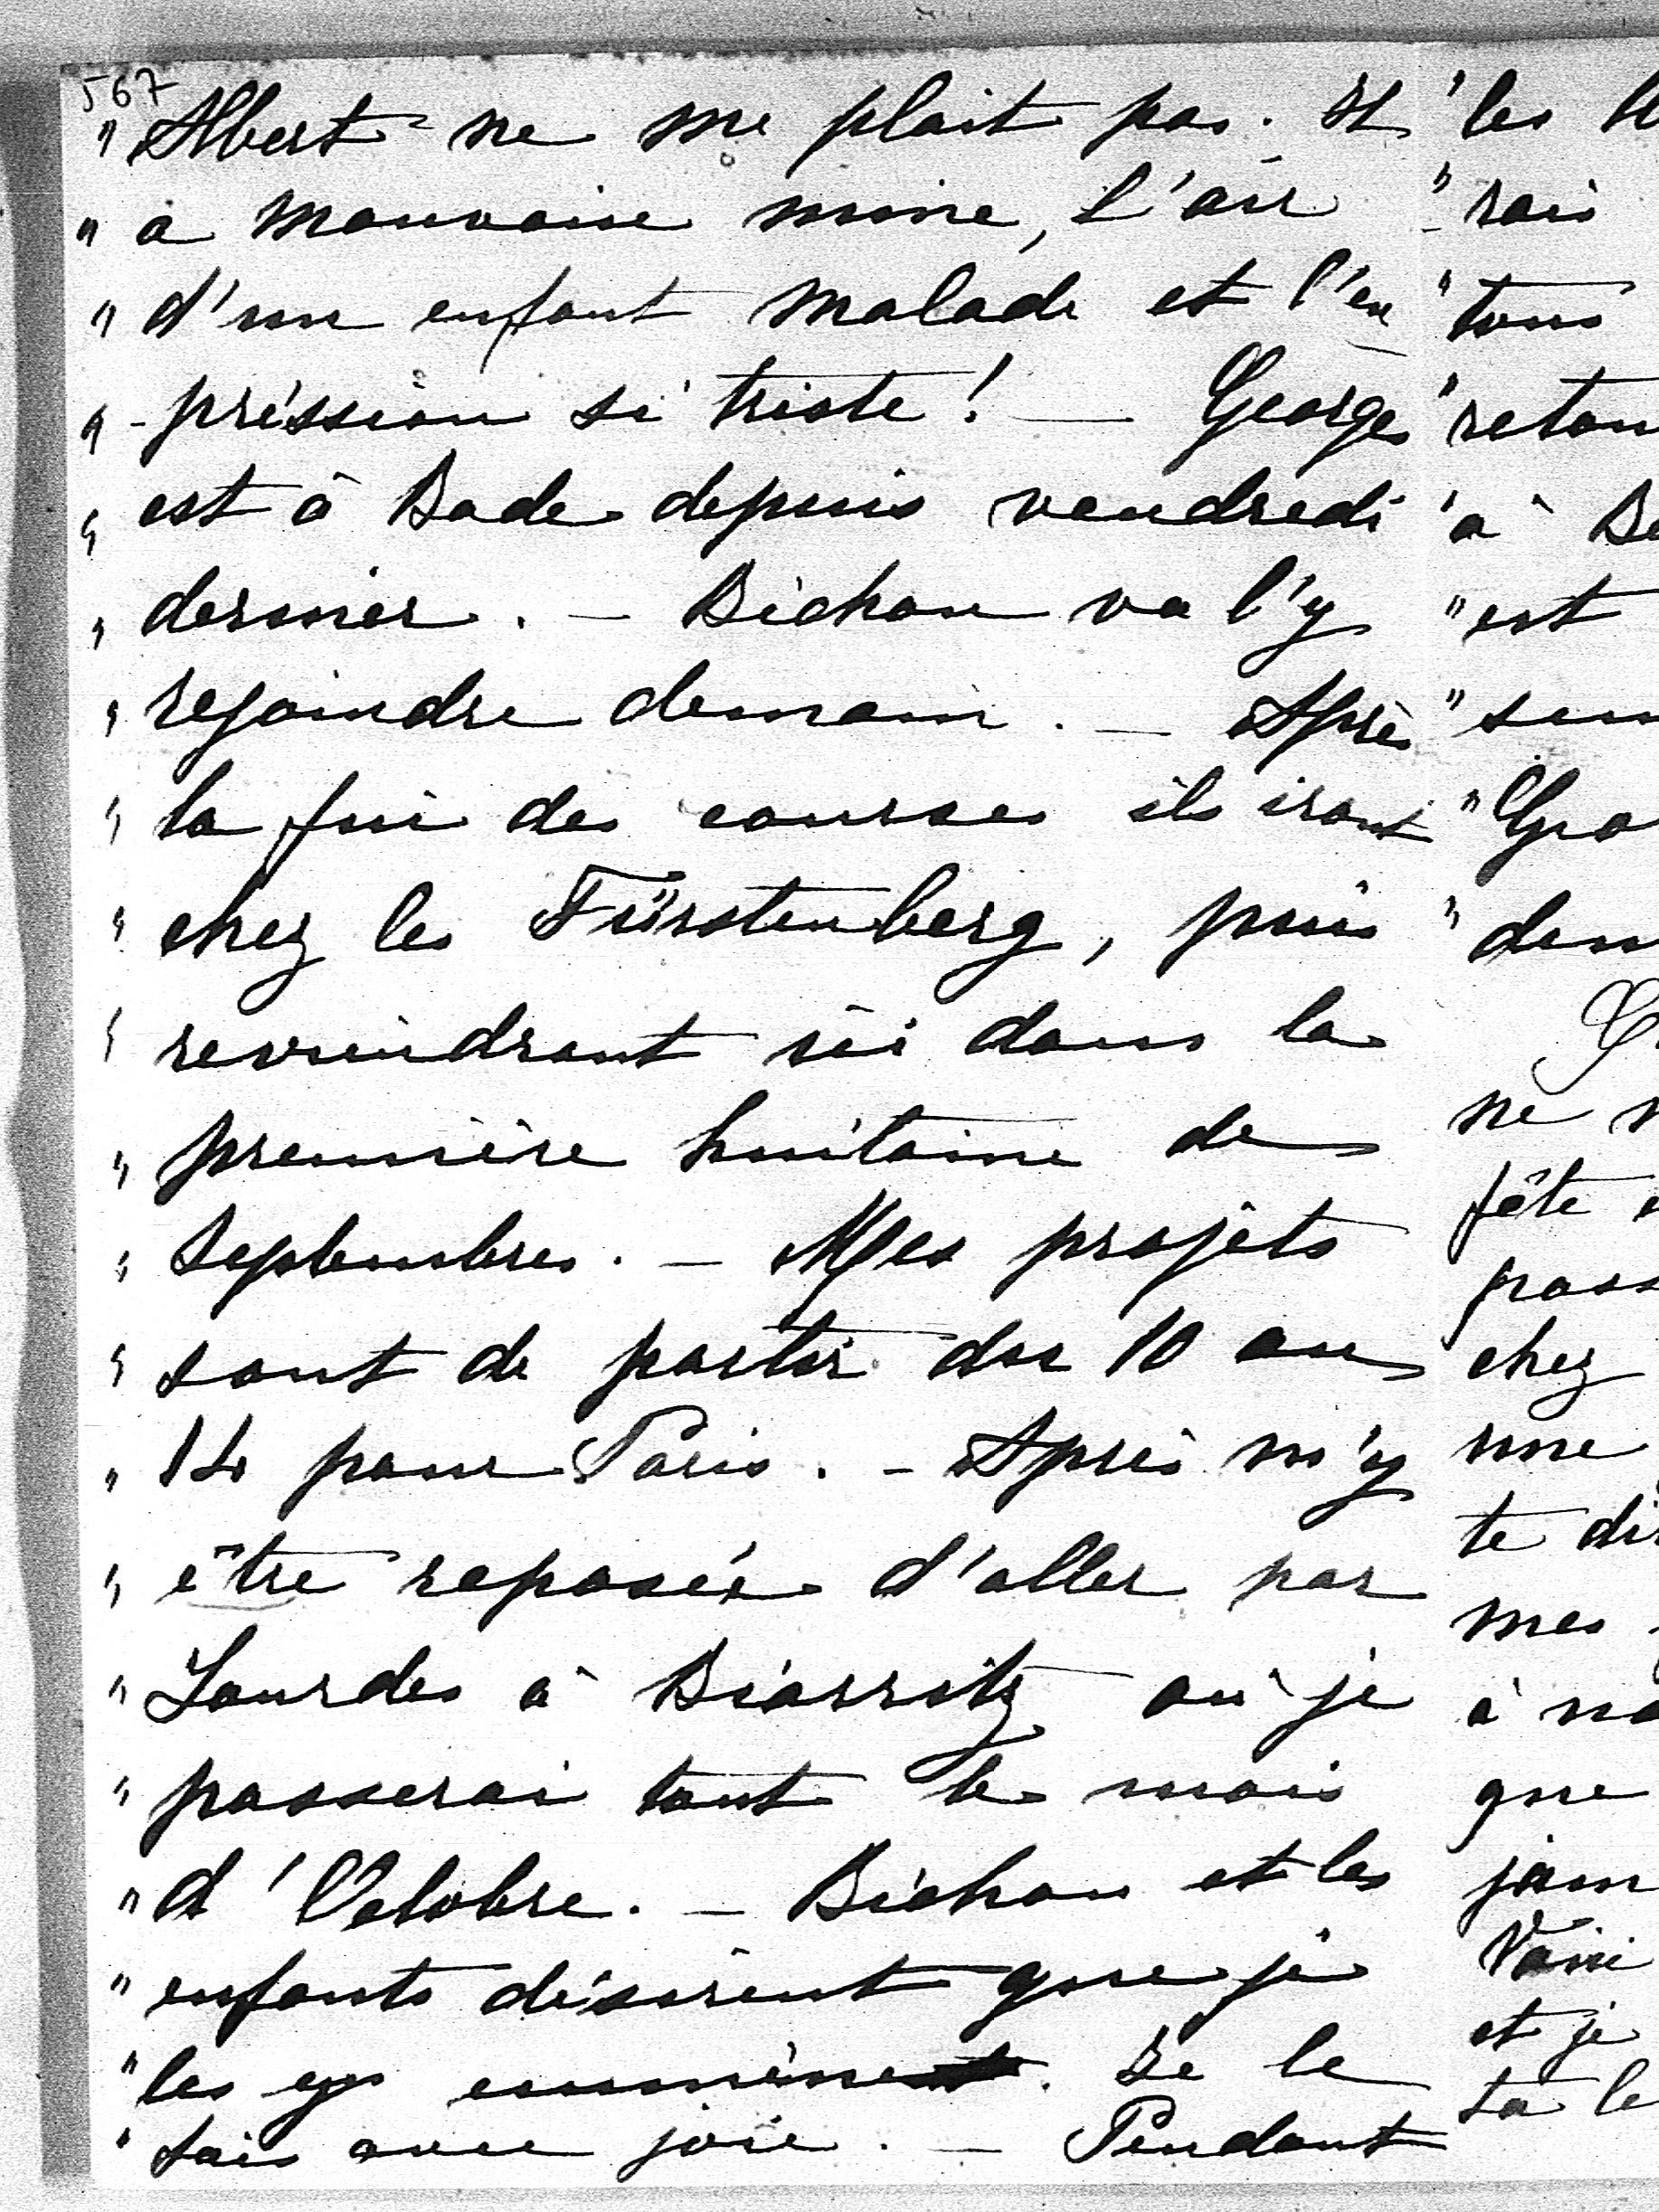 567
" Albert ne me plait pas. Il
" a mauvaise mine, l'air
" d'un enfant malade et l'ex
" -préssion si triste! — Georges
" est à Bade depuis vendredi
" dernier. — Bichon va l'y
" rejoindre demain. — Après
" la fin des courses ils iront
" chez les Fürstenberg, puis
" reviendront ici dans la
" première huitaine de
" Septembre. — Mes projets
" sont de partir du 10 au
" 14 pour Paris. — Après m'y
" être reposée d'aller par
" Lourdes à Biarritz où je
" passerai tout le mois
" d'Octobre. — Bichon et les
" enfants désirent que je
" les y emmène. Je le
" fais avec joie. — Pendant
" les
" rai
" tous
" retou
" à Be
" est
" sem
" Gra
" dem
ne
fête
pass
chez
une
te dir
mes
à no
que
jam
et je
ta le